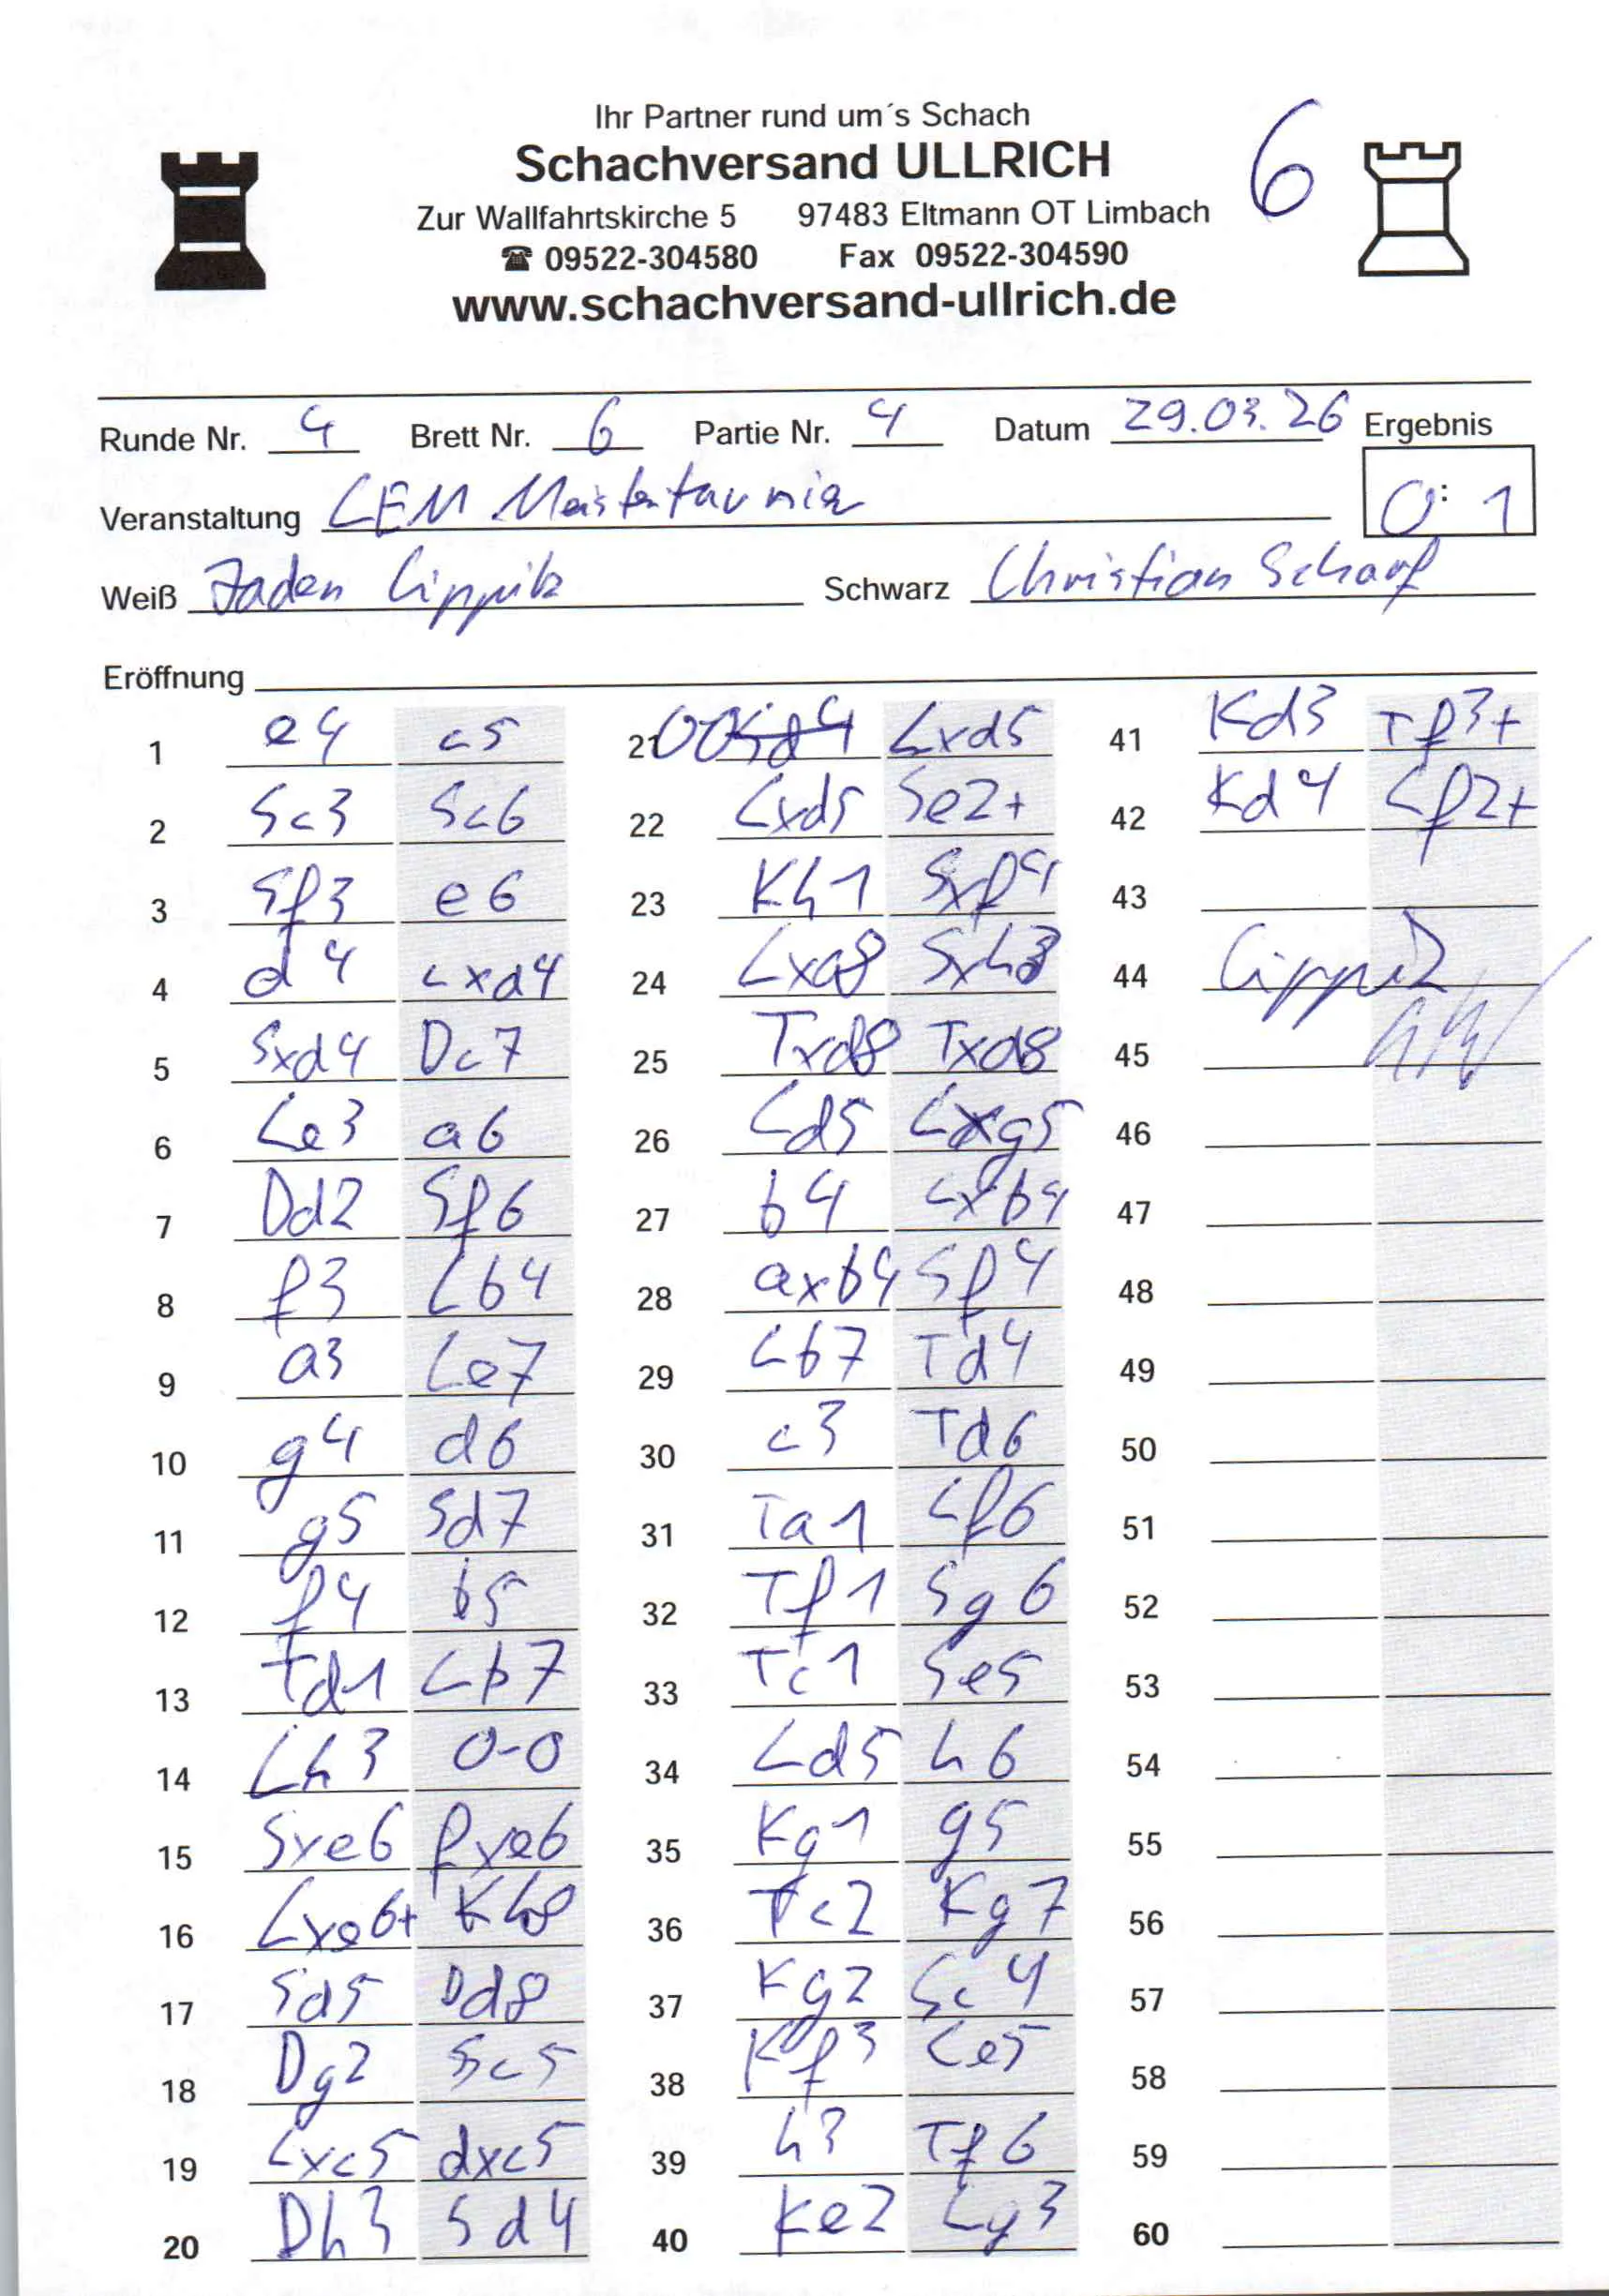 Ihr Partner rund um´s Schach
Schachversand ULLRICH
6
Zur Wallfahrtskirche 5 97483 Eltmann OT Limbach
☎ 09522-304580 Fax 09522-304590
www.schachversand-ullrich.de
Runde Nr. 4 Brett Nr. 6 Partie Nr. 4 Datum 29.03.26 Ergebnis
Veranstaltung LEM Meisterturnier 0 : 1
Weiß Jaden Lippitz Schwarz Christian Scharf
Eröffnung
1 e4 c5 21 00 Lxd5 41 Kd3 Tf3+
2 Sc3 Sc6 22 Lxd5 Se2+ 42 Kd4 Lf2+
3 Sf3 e6 23 Kh1 Sxf4 43
4 d4 cxd4 24 Lxa8 Sxh3 44 Lippitz
5 Sxd4 Dc7 25 Txd8 Txd8 45
6 Le3 a6 26 Ld5 Lxg5 46
7 Dd2 Sf6 27 b4 cxb4 47
8 f3 Lb4 28 axb4 Sf4 48
9 a3 Le7 29 Lb7 Td4 49
10 g4 d6 30 c3 Td6 50
11 g5 Sd7 31 Ta1 Lf6 51
12 f4 b5 32 Tf1 Sg6 52
13 Td1 Lb7 33 Tc1 Se5 53
14 Lh3 0-0 34 Ld5 h6 54
15 Sxe6 fxe6 35 Kg1 g5 55
16 Lxe6+ Kh8 36 Tc2 Kg7 56
17 Sd5 Dd8 37 Kg2 Sc4 57
18 Dg2 Sc5 38 Kf3 Le5 58
19 Lxc5 dxc5 39 h3 Tf6 59
20 Dh3 Sd4 40 Ke2 Lg3 60